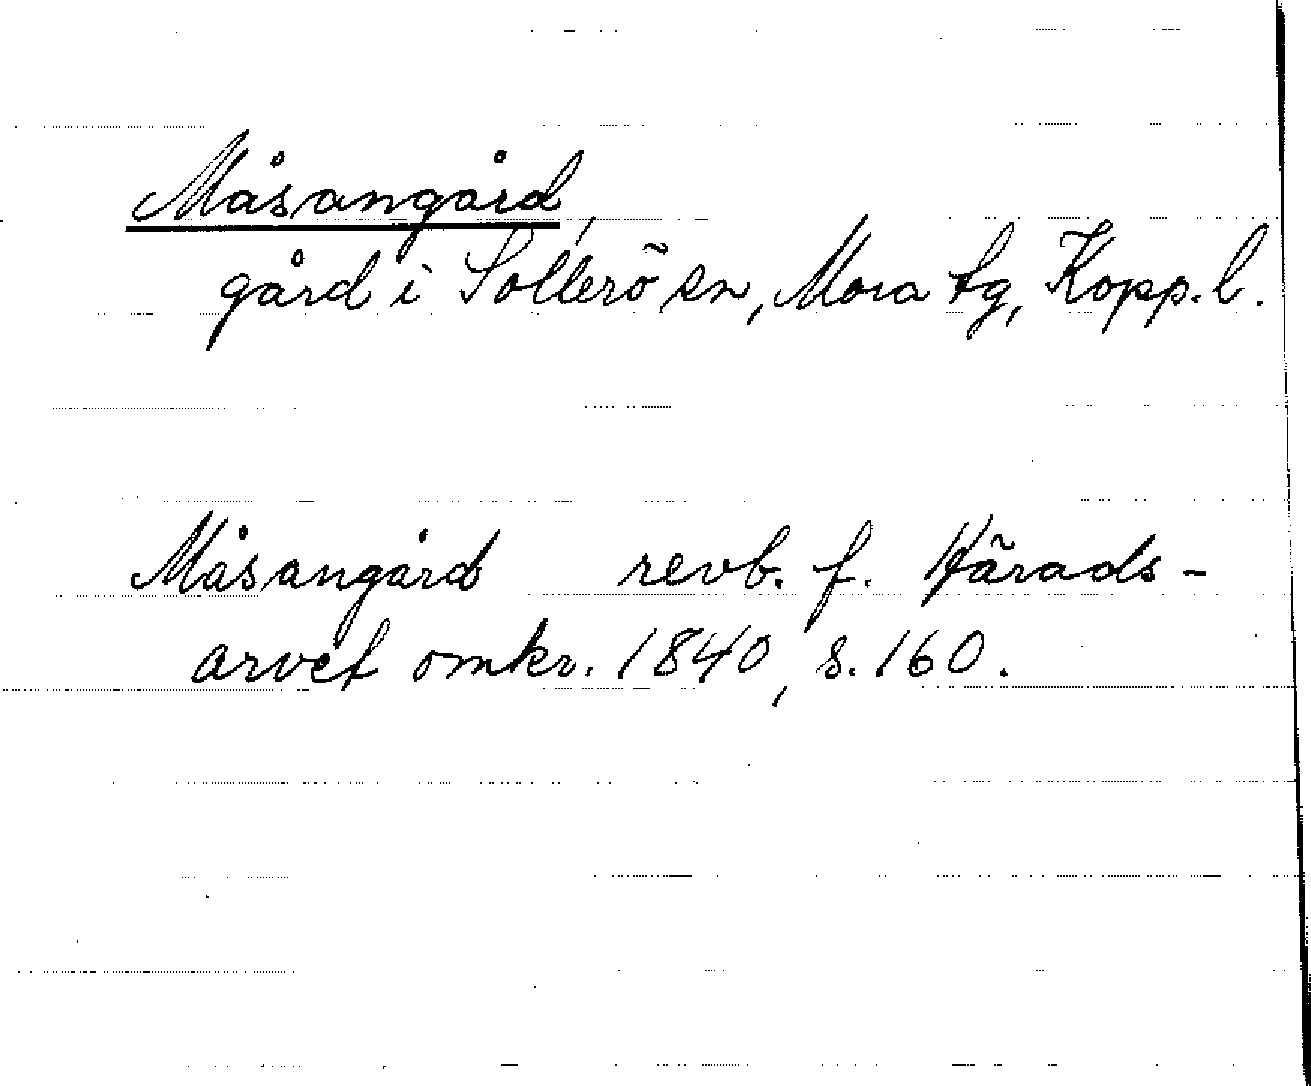 Måsangård,
gård i Sollerö sn, Mora tg, Kopp. l.
Måsangård revb. f. Härads-
arvet omkr. 1840, s. 160.